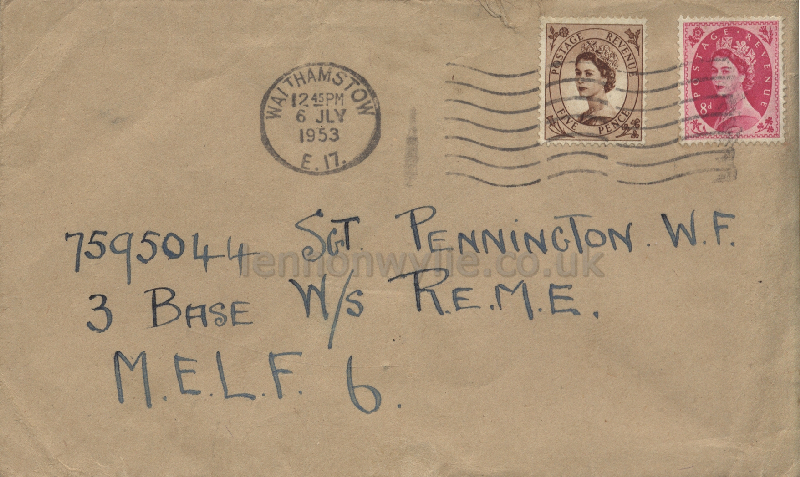 WALTHAMSTOW
12 45 PM
6 JLY
1953
E.17.
POSTAGE REVENUE
FIVE PENCE
POSTAGE REVENUE
8d
7595044 SGT. PENNINGTON. W.F.
3 BASE W/s R.E.M.E.
M.E.L.F. 6.
lennonwylie.co.uk